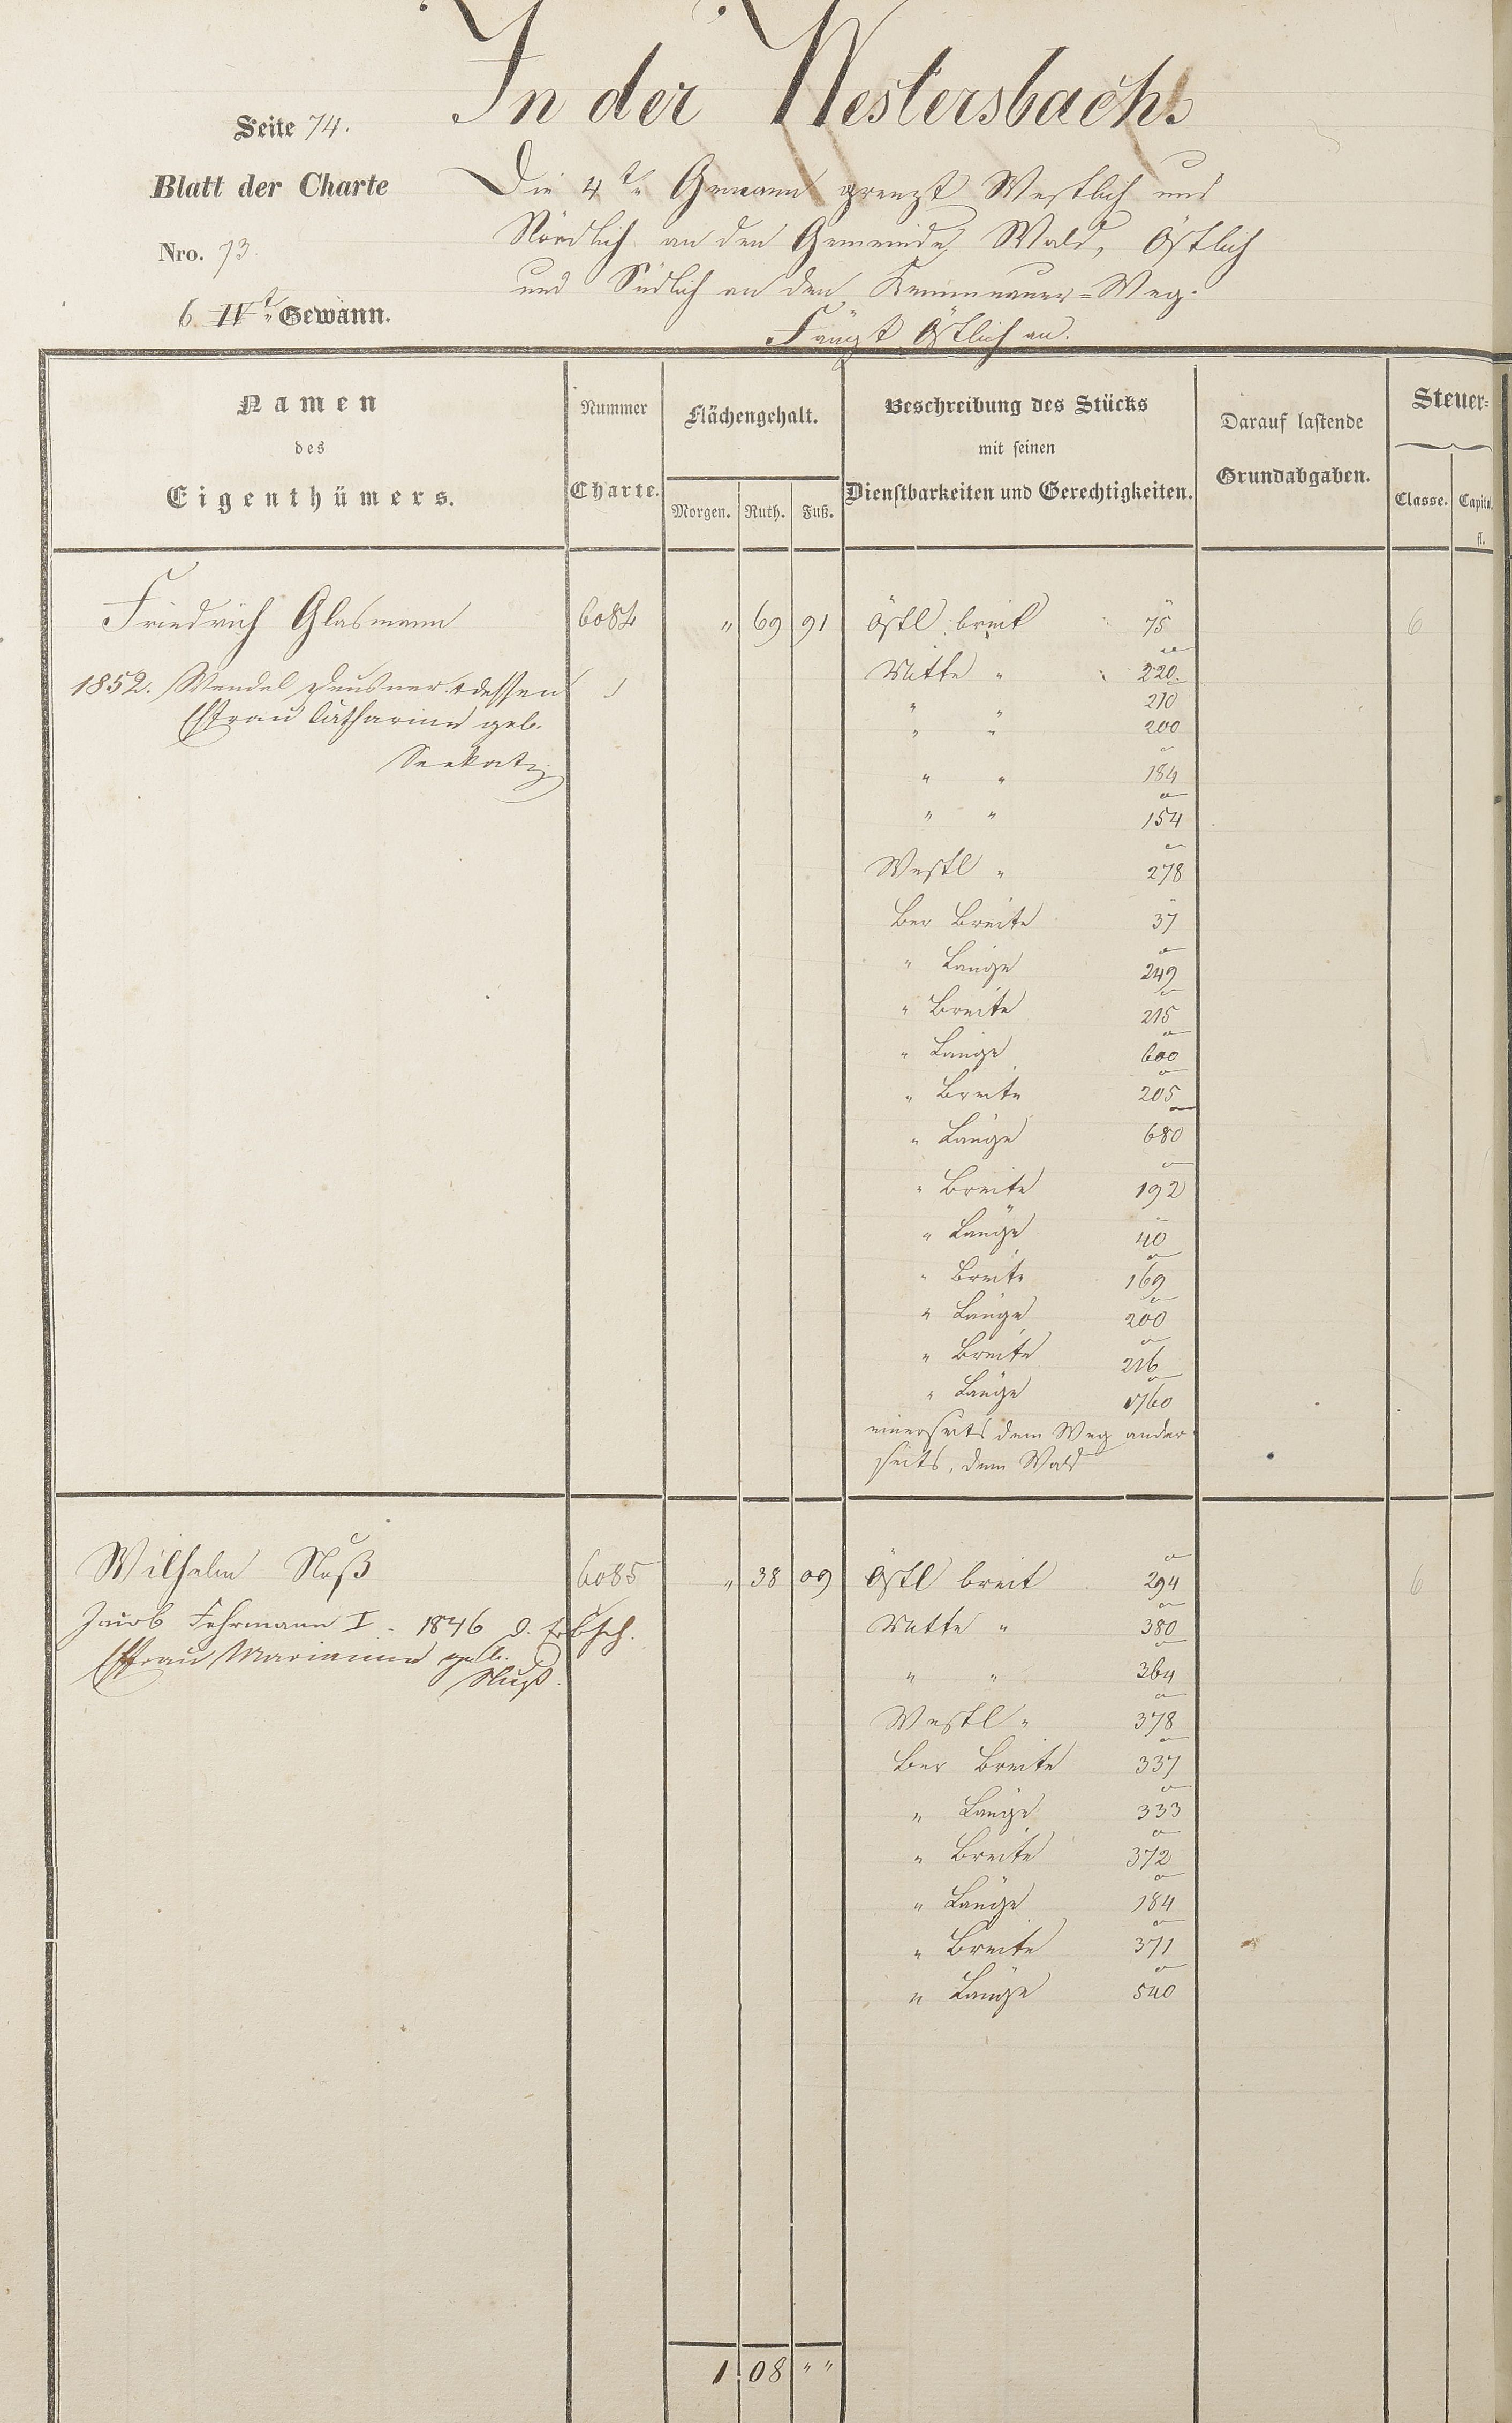 In der Westersbach.
Seite 74.
Blatt der Charte
Nro. 73
6 IVte Gewann.
Die 4te Gewann grenzt Westlich und
Nördlich an den Gemeinde Wald, Östlich
und Südlich an den Kemmenauer-Weg.
Fängt Östlich an.
Namen
des
Eigenthümers.
Nummer
Charte.
Flächengehalt.
Morgen. Ruth. Fuß.
Beschreibung des Stücks
mit seinen
Dienstbarkeiten und Gerechtigkeiten.
Darauf lastende
Grundabgaben.
Steuer-
Classe. Capital
fl.
Friedrich Glasmann 6084 " 69 91 Östl breit 75 6
1852. Wendel Deusner & dessen
Ehfrau Catharina geb.
Seekatz
Mitte " 220.
" " 210
" " 200
" " 184
" " 154
Westl " 278
Ber Breite 37
" Länge 249
" Breite 215
" Länge 600
" Breite 205
" Länge 680
" Breite 192
" Länge 40
" Breite 169
" Länge 200
" Breite 216
" Länge 1760
einerseits dem Weg ander
seits, dem Wald
Wilhelm Nuß 6085 " 38 09 Östl breit 294 6
Jacob Fehrmann I. 1846 d. Erbsch.
Ehfrau Marianna geb.
Nuß.
Mitte " 380
" " 364
Westl " 378
Ber Breite 337
" Länge 333
" Breite 372
" Länge 184
" Breite 371
" Länge 540
1. 08 " "